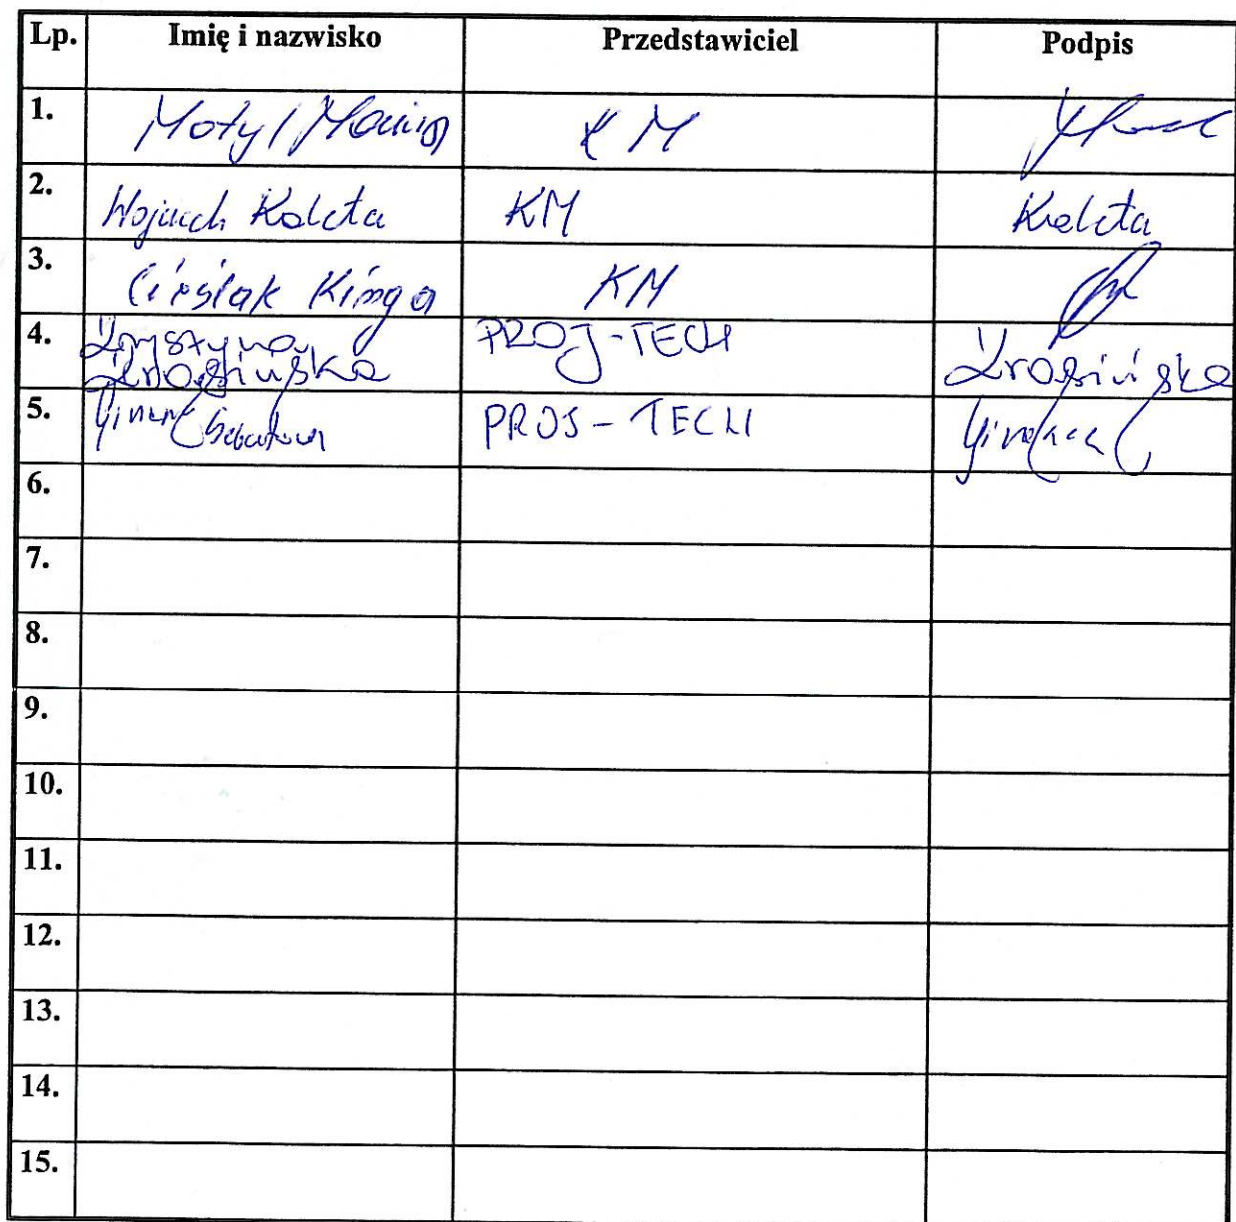 Lp. Imię i nazwisko Przedstawiciel Podpis
1. Motyl KM
2. Wojciech Kaleta KM Kaleta
3. Cieślak Kinga KM
4. Krystyna PROJ-TECH
Krasińska Krasińska
5. PROJ-TECH
6.
7.
8.
9.
10.
11.
12.
13.
14.
15.